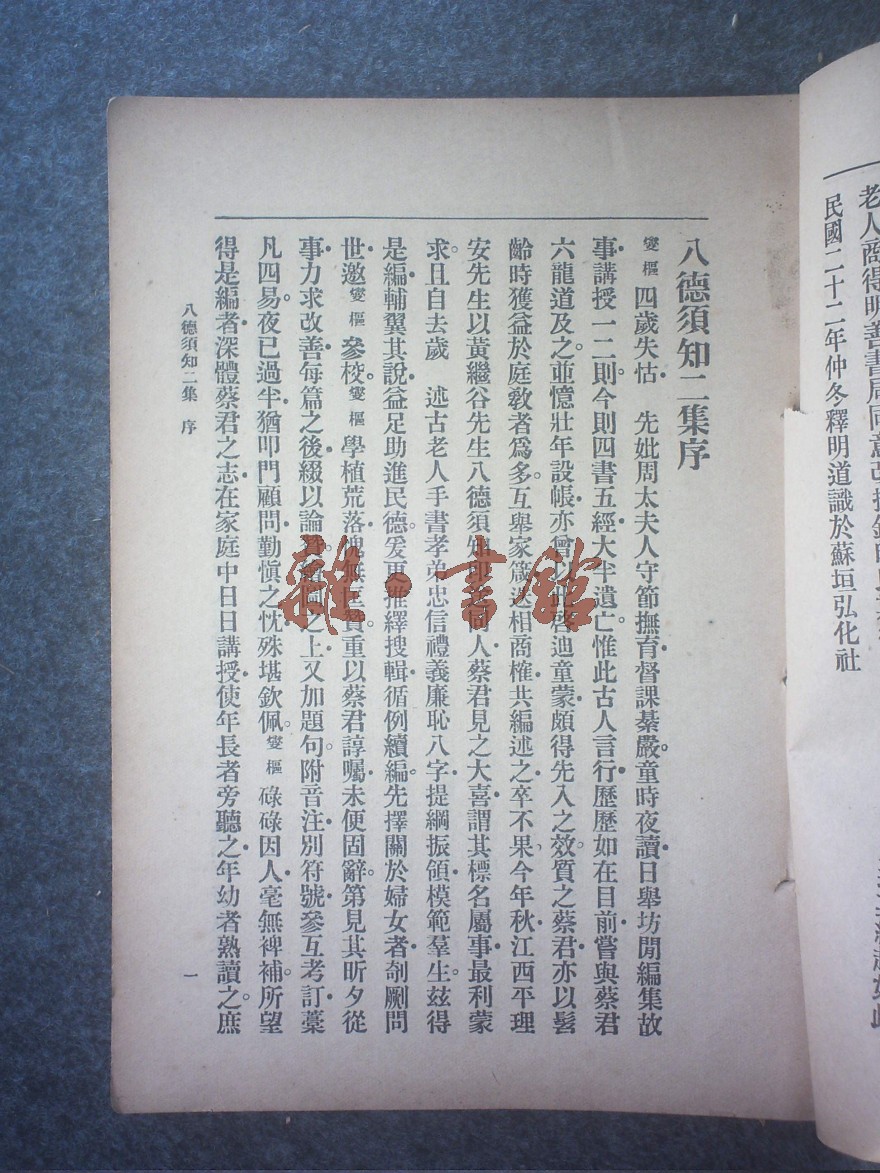 老人商得明善書局同意
民國二十二年仲冬釋明道識於蘇垣弘化社
八德須知二集序
燮樞四歲失怙 先妣周太夫人守節撫育督課綦嚴童時夜讀日舉坊閒編集故
事講授一二則今則四書五經大半遺亡惟此古人言行歷歷如在目前嘗與蔡君
六龍道及之並憶壯年設帳亦曾以此啓迪童蒙頗得先入之效質之蔡君亦以髫
齡時獲益於庭敎者爲多互舉家箴迭相商榷共編述之卒不果今年秋江西平理
安先生以黃繼谷先生八德須知 同人蔡君見之大喜謂其標名屬事最利蒙
求且自去歲 述古老人手書孝弟忠信禮義廉恥八字提綱振領模範羣生玆得
是編輔翼其說益足助進民德爰更推繹搜輯循例續編先擇關於婦女者剞劂問
世邀燮樞參校燮樞學植荒落愧無 重以蔡君諄囑未便固辭第見其昕夕從
事力求改善每篇之後綴以論 圖之上又加題句附音注別符號參互考訂藁
凡四易夜已過半猶叩門顧問勤愼之忱殊堪欽佩燮樞碌碌因人毫無裨補所望
得是編者深體蔡君之志在家庭中日日講授使年長者旁聽之年幼者熟讀之庶
八德須知二集 序
一
雜·書館